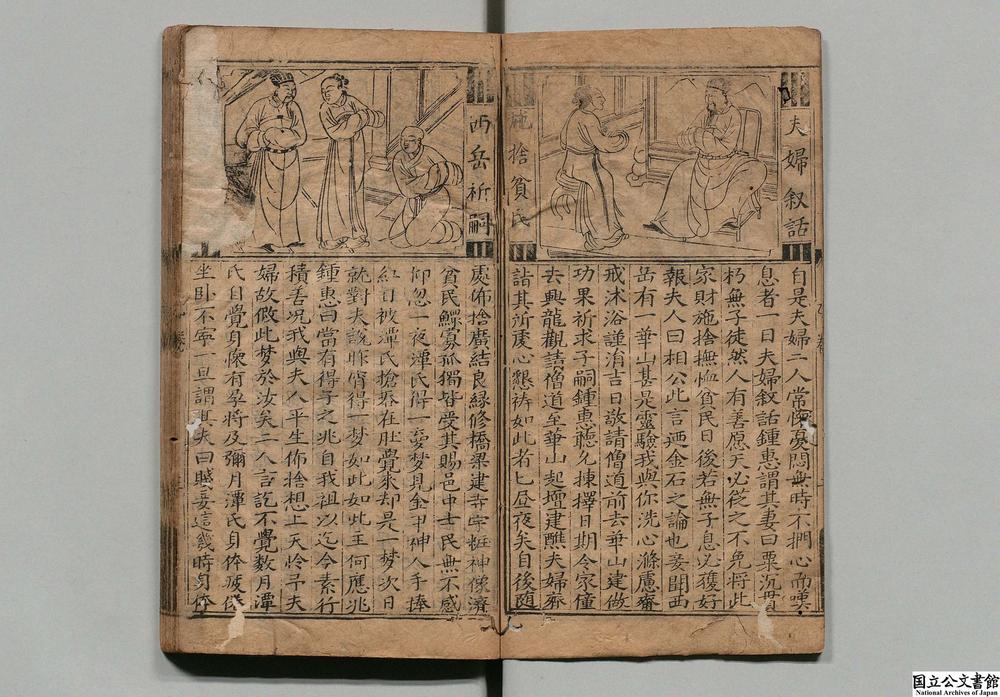 夫婦叙話
施捨貧民
自是夫婦二人常懷憂悶無時不捫心而嘆
息者一日夫婦叙話鍾惠謂其妻曰粟沉貫
朽無子徒然人有善原天必從之不免將此
家財施捨撫恤貧民日後若無子息必獲好
報夫人曰相公此言迺金石之論也妾聞西
岳有一華山甚是靈驗我與你洗心滌慮齋
戒沐浴謹涓吉日敬請僧道前去華山建做
功果祈求子嗣鍾惠聽允揀擇日期令家僮
去興龍觀請僧道至華山起壇建醮夫婦齊
詣其所虔心懇禱如此者七昼夜矣自後随
西岳祈嗣
處佈捨廣結良緣修橋梁建寺宇粧神像濟
貧民鰥寡孤獨皆受其賜邑中士民無不感
仰忽一夜潭氏得一夢夢見金甲神人手捧
紅日被潭氏搶吞在肚覺來却是一梦次日
就對夫說昨宵得一梦如此如此主何應兆
鍾惠曰當有得子之兆自我祖以迄今素行
積善况我與夫人平生佈捨想上天怜予夫
婦故假此梦於汝矣二人言訖不覺数月潭
氏自覺身懷有孕將及彌月潭氏身体疲倦
坐卧不寧一旦謂其夫曰賤妾這幾時身体
国立公文書館
National Archives of Japan